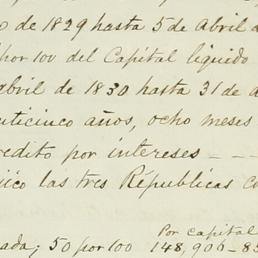 de 1829 hasta 5 de Abril d
por 100 del Capital líquido
abril de 1830 hasta 31 de a
nticinco años, ocho meses
redito por intereses - - -
jico las tres Républicas co
Por capital
ada; 50 por 100 148,906-83